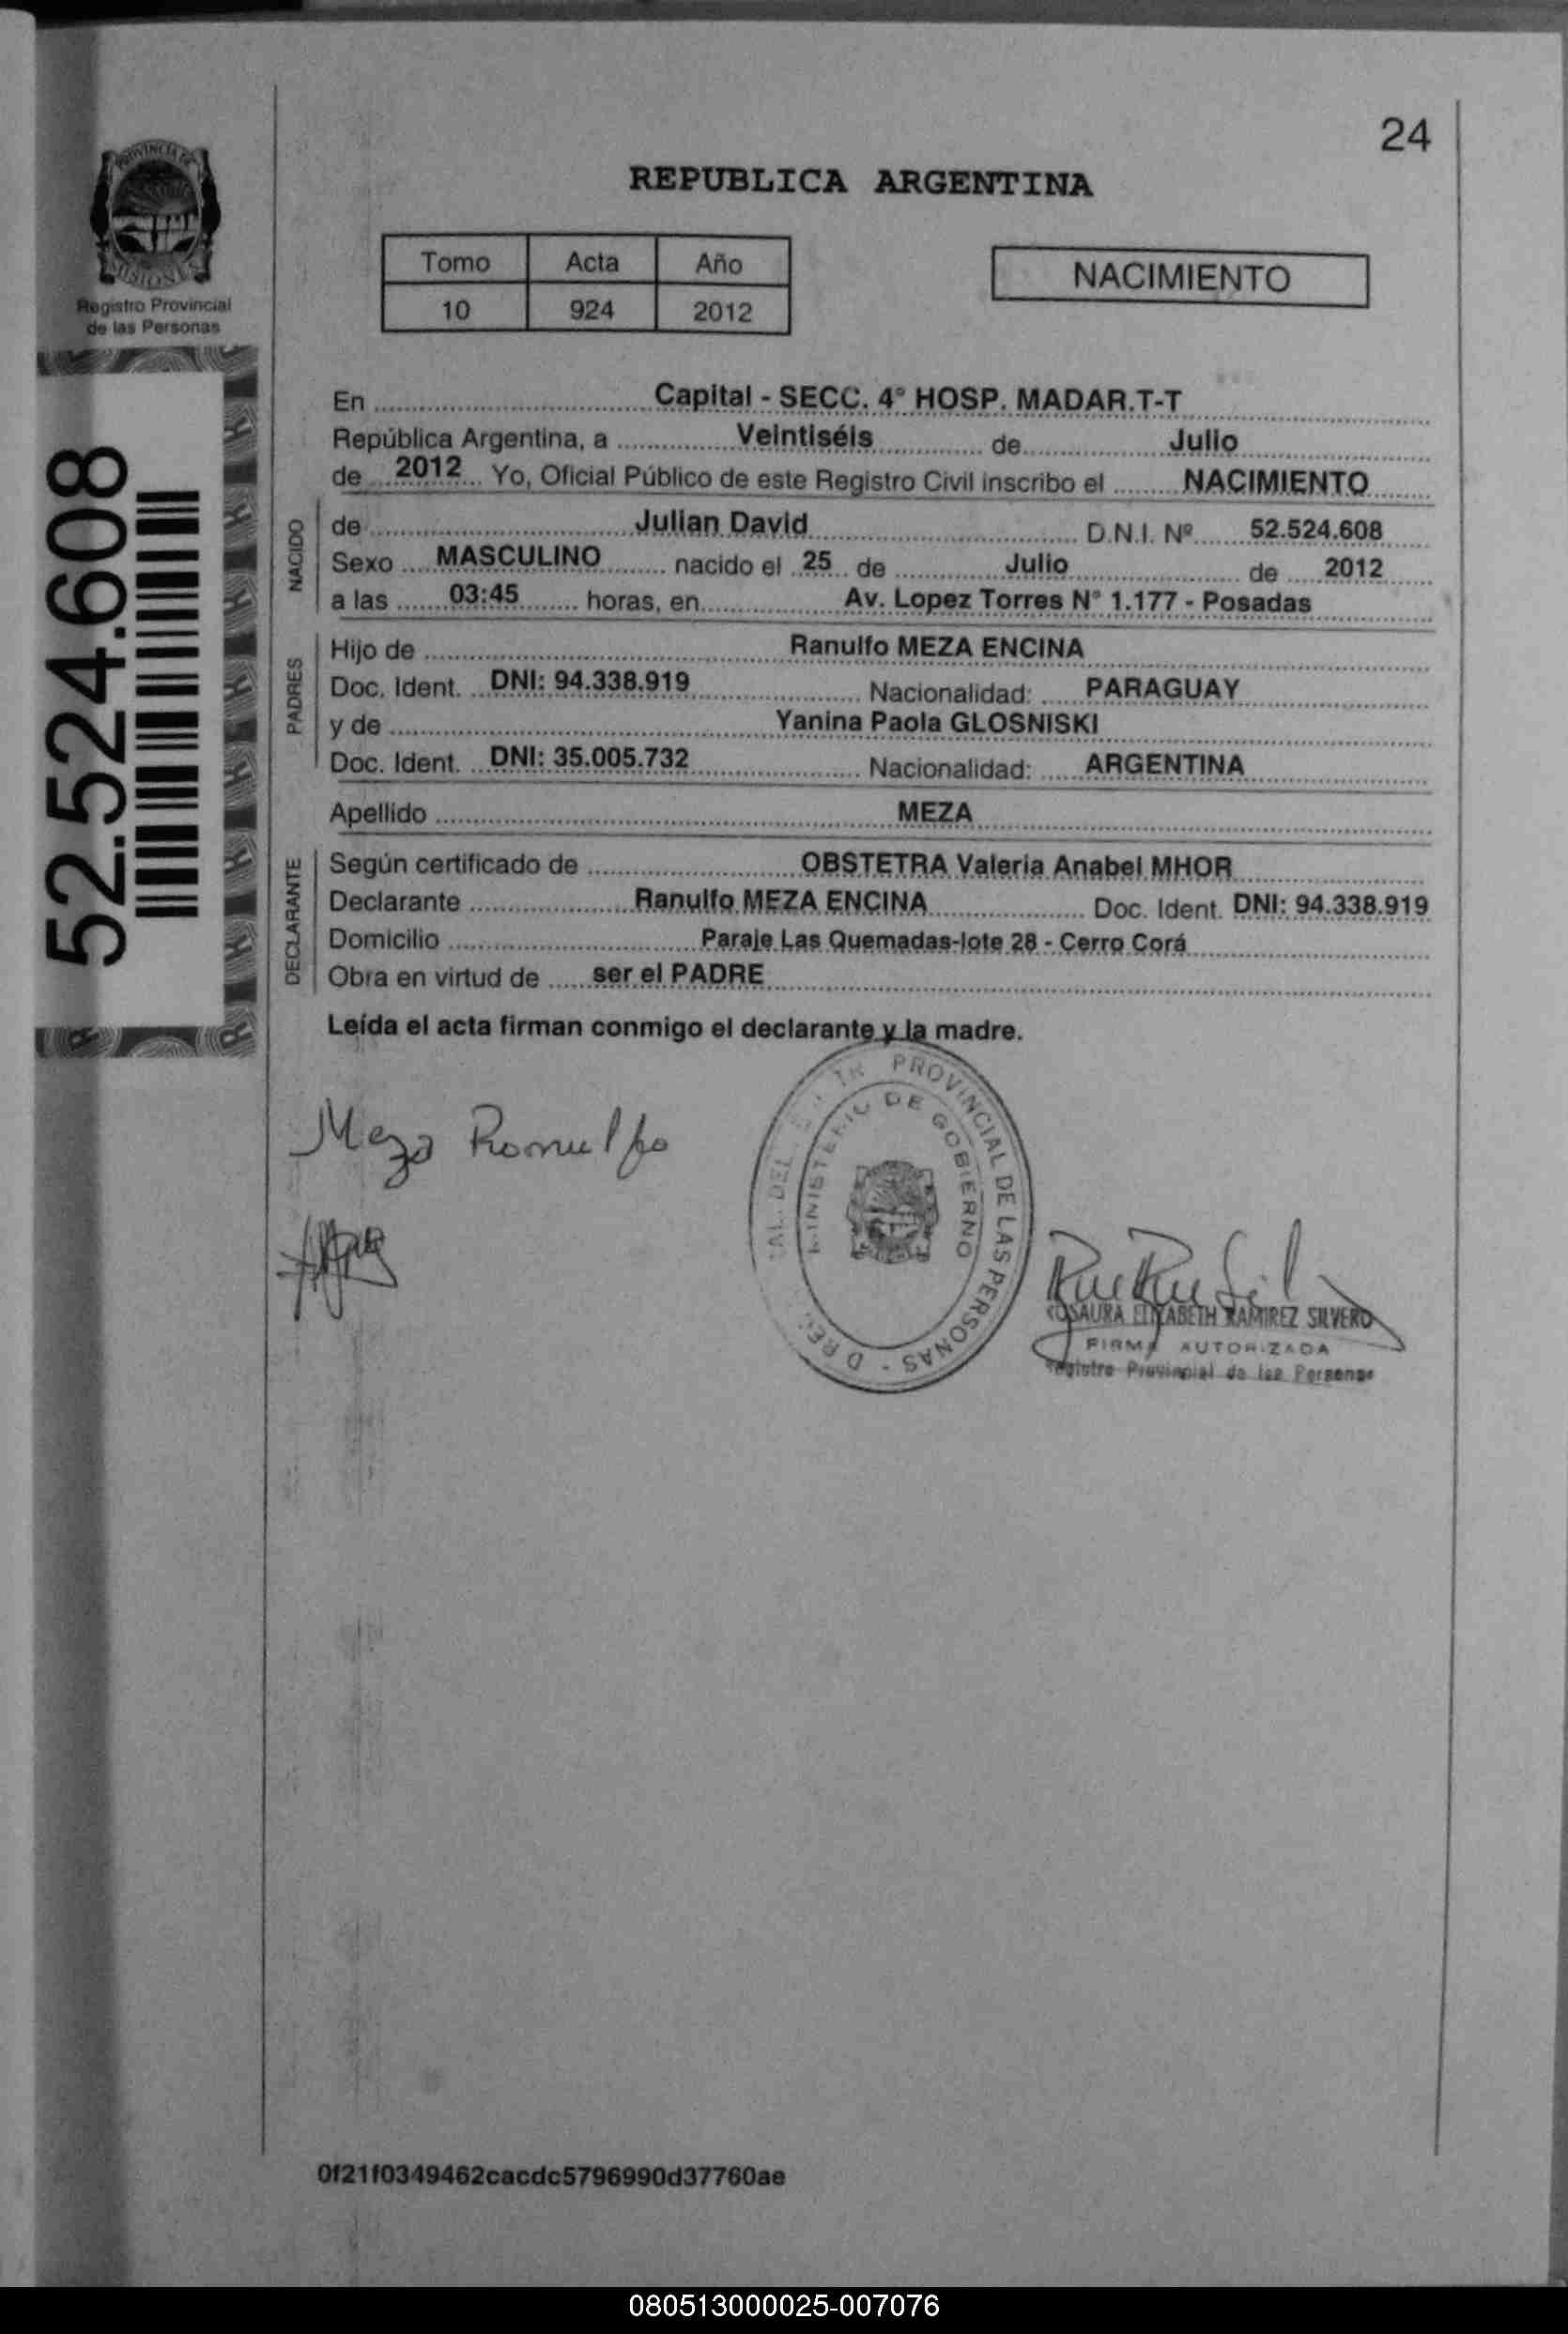 24
PROVINCIA DE
MISIONES
Registro Provincial
de las Personas
52.524.608
REPUBLICA ARGENTINA
Tomo Acta Año
10 924 2012
NACIMIENTO
En Capital - SECC. 4° HOSP. MADAR.T-T
República Argentina, a Veintiséis de Julio
de 2012 Yo, Oficial Público de este Registro Civil inscribo el NACIMIENTO
NACIDO
de Julian David D.N.I. Nº 52.524.608
Sexo MASCULINO nacido el 25 de Julio de 2012
a las 03:45 horas, en Av. Lopez Torres N° 1.177 - Posadas
PADRES
Hijo de Ranulfo MEZA ENCINA
Doc. Ident. DNI: 94.338.919 Nacionalidad: PARAGUAY
y de Yanina Paola GLOSNISKI
Doc. Ident. DNI: 35.005.732 Nacionalidad: ARGENTINA
Apellido MEZA
DECLARANTE
Según certificado de OBSTETRA Valeria Anabel MHOR
Declarante Ranulfo MEZA ENCINA Doc. Ident. DNI: 94.338.919
Domicilio Paraje Las Quemadas-lote 28 - Cerro Corá
Obra en virtud de ser el PADRE
Leída el acta firman conmigo el declarante y la madre.
Meza Romulfo
PROVINCIAL DE LAS PERSONAS
MINISTERIO DE GOBIERNO
ROSAURA ELIZABETH RAMIREZ SILVERO
FIRMA AUTORIZADA
Registro Provincial de las Personas
0f21f0349462cacdc5796990d37760ae
080513000025-007076